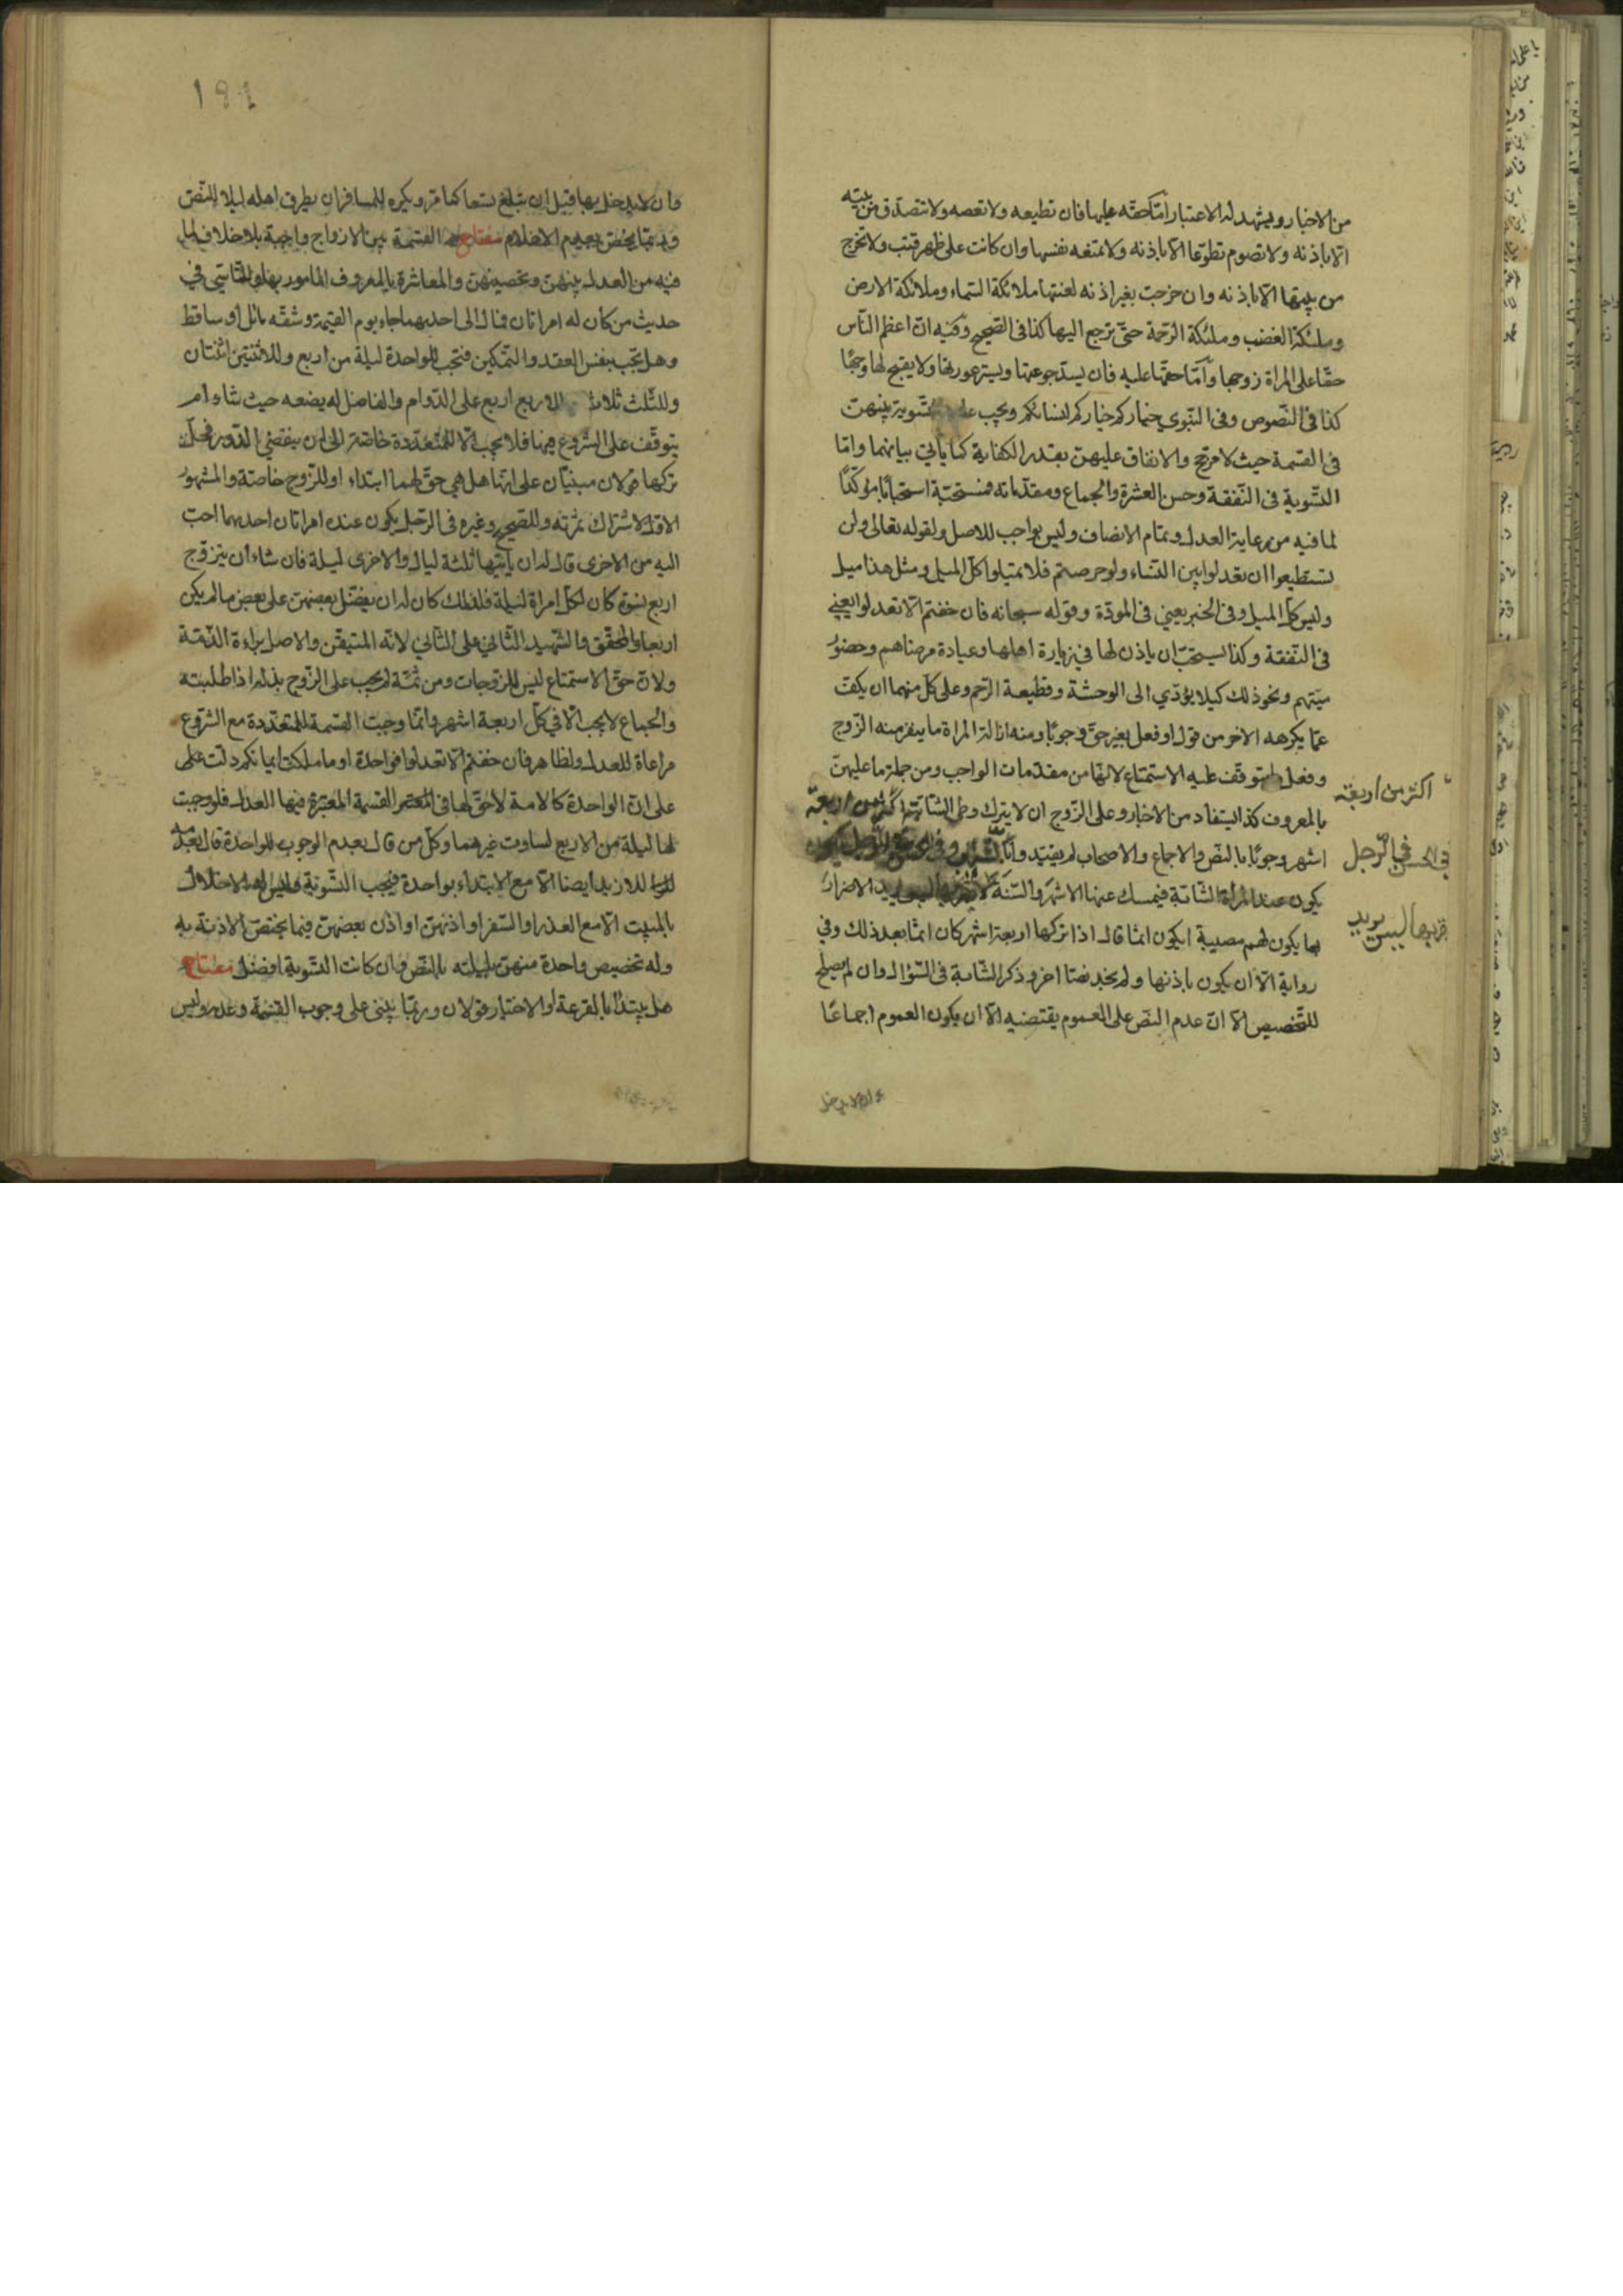 من الاخبار ويشهد له الاعتبار امّا حقه عليها فان تطيعه ولا تعصه ولا تتصدق من بيته
الا باذنه ولا تصوم تطوعا الا باذنه ولا تمنعه نفسها وان كانت على ظهر قتب ولا تخرج
من بيتها الا باذنه وان خرجت بغير اذنه لعنتها ملائكة السماء وملائكة الارض
وملئكة الغضب وملئكة الرحمة حتى ترجع اليها كذا فى الصحيح وفيه ان اعظم الناس
حقا على المراة زوجها وامّا حقها عليه فان يسد جوعتها ويستر عورتها ولا يقبح لها وجها
كذا فى النصوص وفى النبوي خياركم خياركم لنسائكم ويجب التسوية بينهن
فى القسمة حيث لا مرجح والانفاق عليهن بقدر الكفاية كما يأتي بيانهما وامّا
التسوية فى النفقة وحسن العشرة والجماع ومقدماته فمستحبة استحبابا مؤكدًا
لما فيه من رعاية العدل وتمام الانصاف وليس بواجب للاصل ولقوله تعالى ولن
تستطيعوا ان تعدلوا بين النساء ولو حرصتم فلا تميلوا كل الميل ومثل هذا ميل
وليس كل الميل وفى الخبر يعني فى المودة وقوله سبحانه فان خفتم الا تعدلوا يعني
فى النفقة وكذا يستحب ان ياذن لها في زيارة اهلها وعيادة مرضاهم وحضور
ميتهم ونحو ذلك كيلا يؤدي الى الوحشة وقطيعة الرحم وعلى كل منهما ان يكف
عما يكرهه الاخر من قول او فعل بغير حق وجوبًا ومنه ازالة المراة ما ينفر منه الزوج
وفعل ما يتوقف عليه الاستمتاع لانها من مقدمات الواجب ومن جملة ما عليهن
بالمعروف كذا يستفاد من الاخبار وعلى الزوج ان لا يترك وطى الشابة اكثر من اربعة
اكثر من اربعة
اشهر وجوبًا بالنص والاجماع والاصحاب لم يقيد وا
فى الرجل
يكون عند المراة الشابة فيمسك عنها الاشهر والسنة لا يقربها ليس يريد الاضرار
يقربها ليس يريد
بها يكون لهم مصيبة ايكون اثما قال اذا تركها اربعة اشهر كان اثما بعد ذلك وفي
رواية الا ان يكون باذنها ولم يجد نصا اخر وذكر الشابة فى السؤال وان لم يصلح
للتخصيص الا ان عدم النص على العموم يقتضيه الا ان يكون العموم اجماعًا
وان لا يدخل
١٩١
وان لا يدخل بها قبل ان تبلغ تسعا كما مر ويكره للمسافر ان يطرق اهله ليلا للنص
وربما يخص بعدم الاعلام مفتاح القسمة بين الازواج واجبة بلا خلاف لما
فيه من العدل بينهن وتحصينهن والمعاشرة بالمعروف المامور بها وللتاسي فى
حديث من كان له امراتان فمال الى احديهما جاء يوم القيمة وشقه مائل او ساقط
وهل تجب بنفس العقد والتمكين فتجب للواحدة ليلة من اربع وللاثنتين اثنتان
وللثلث ثلاث وللاربع اربع على الدوام والفاضل له يضعه حيث شاء ام
يتوقف على الشروع فيها فلا تجب الا للمتعددة خاصة الى ان ينقضي الدور فيحل
تركها قولان مبنيان على انها هل هي حق لهما ابتداء او للزوج خاصة والمشهور
الاول لاشتراك ثمرته وللصحيح وغيره فى الرجل يكون عنده امراتان احديهما احب
اليه من الاخرى قال له ان يأتيها ثلثة ليال والاخرى ليلة فان شاء ان يتزوج
اربع نسوة كان لكل امراة ليلة فلذلك كان له ان يفضل بعضهن على بعض ما لم يكن
اربعا والمحقق والشهيد الثاني على الثاني لانه المتيقن والاصل براءة الذمة
ولان حق الاستمتاع ليس للزوجات ومن ثمة لم يجب على الزوج بذله اذا طلبته
والجماع لا يجب الا في كل اربعة اشهر وانما وجبت القسمة للمتعددة مع الشروع
مراعاة للعدل ولظاهر فان خفتم الا تعدلوا فواحدة او ما ملكت ايمانكم دلت على
على ان الواحدة كالامة لا حق لها فى القسمة المعتبرة فيها العدل فلو وجبت
لها ليلة من الاربع لساوت غيرهما وكل من قال بعدم الوجوب للواحدة قال بعدمه
للازيد ايضا الا مع الابتداء بواحدة فيجب التسوية وليس له الاخلال
بالمبيت الا مع العذر او السفر او اذنهن او اذن بعضهن فيما يختص الاذنة به
وله تخصيص واحدة منهن بليلته بالنص وان كانت التسوية افضل مفتاح
هل يبتدأ بالقرعة او الاختيار قولان وربما يبنى على وجوب القسمة وعدمه وليس